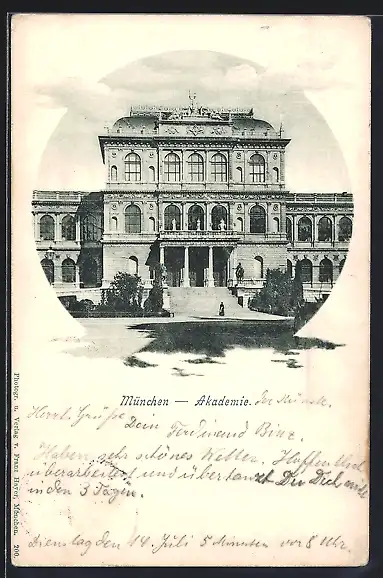 München — Akademie. der Künste.
Herzl. Grüße
Dein Ferdinand
Haben sehr schönes Wetter. Hoffentlich
überarbeitest und übertanzt Du Dich nicht
in den 3 Tagen.
Dienstag den 14. Juli 5 Minuten vor 8 Uhr.
Photogr. u. Verlag v. Franz Hayer, München. 200.